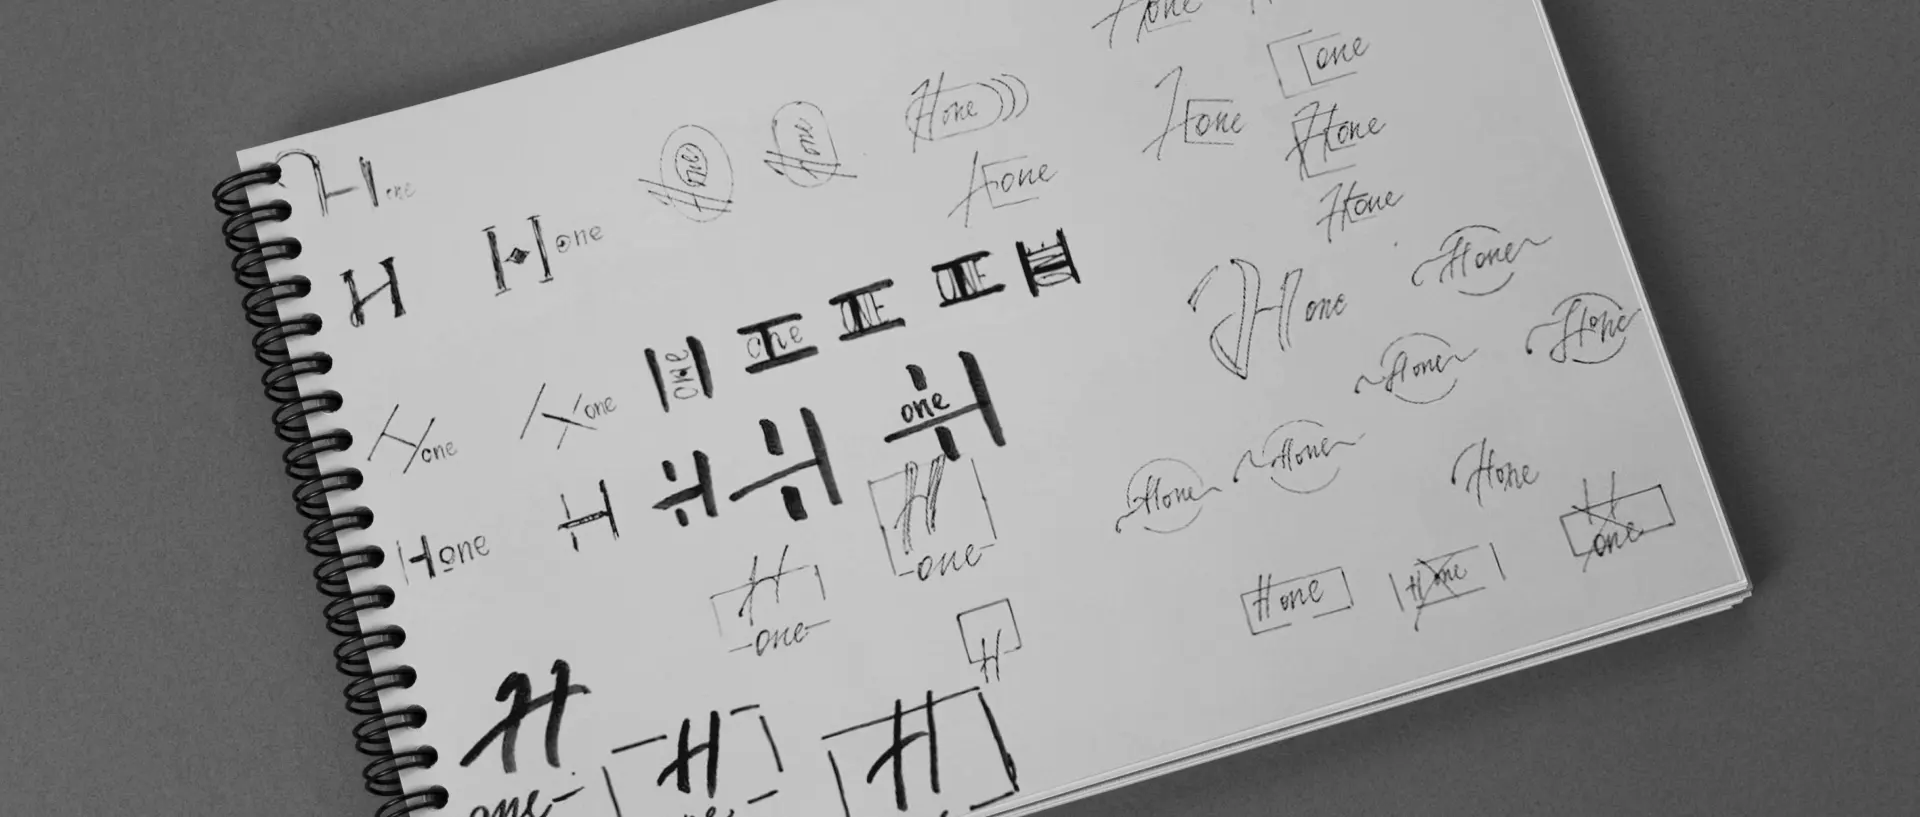 Hone
one
Hone
Hone
Hone
Hone
Hone
Hone
Hone
Hone
H one
H
H one
ONE
ONE
one
one
Hone
Hone
Hone
Hone
Hone
Hone
H one
one
H
Hone
Hone
H
H
H
H
one
H
one
Hone
Hone
Hone
Hone
H
one
H
H
one
H
H